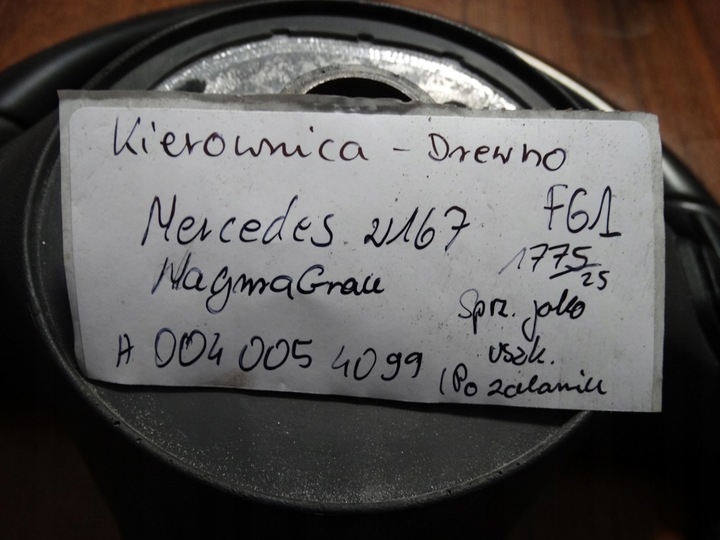 Kierownica - Drewno
Mercedes W167 FG1
MagmaGrau 1775/25
Sprz. jako
A 004 005 4099 uszk.
(Po zalaniu